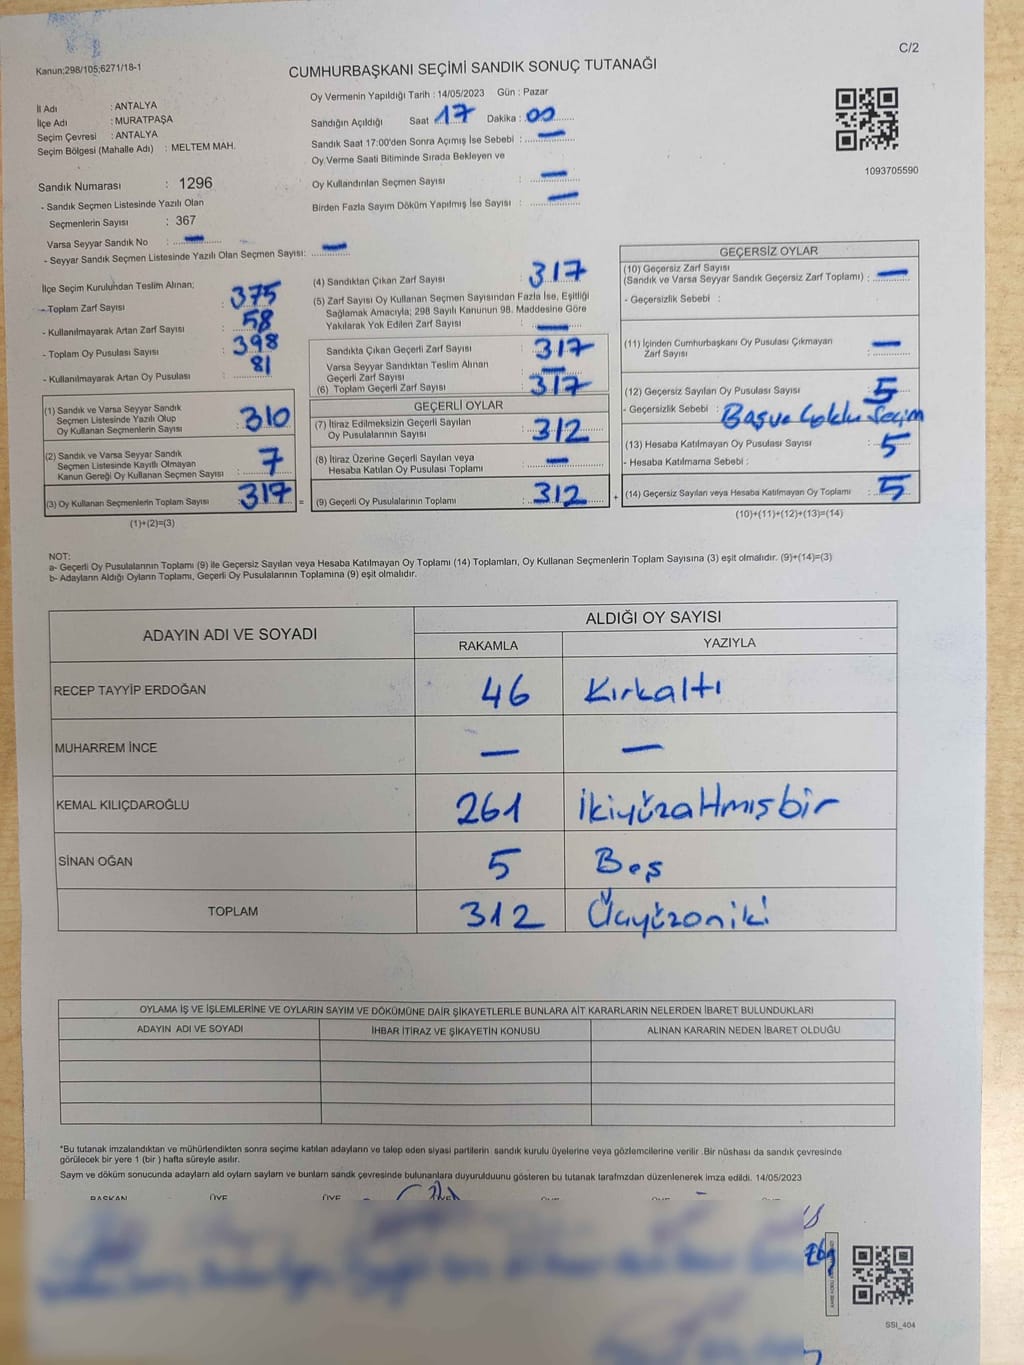 C/2
Kanun;298/105;6271/18-1
CUMHURBAŞKANI SEÇİMİ SANDIK SONUÇ TUTANAĞI
İl Adı : ANTALYA
İlçe Adı : MURATPAŞA
Seçim Çevresi : ANTALYA
Seçim Bölgesi (Mahalle Adı) : MELTEM MAH.
Oy Vermenin Yapıldığı Tarih : 14/05/2023 Gün : Pazar
Sandığın Açıldığı Saat 17 Dakika : 00
Sandık Saat 17:00'den Sonra Açımış İse Sebebi : —
Oy Verme Saati Bitiminde Sırada Bekleyen ve
Oy Kullandırılan Seçmen Sayısı : —
Birden Fazla Sayım Döküm Yapılmış İse Sayısı : —
1093705590
Sandık Numarası : 1296
- Sandık Seçmen Listesinde Yazılı Olan
Seçmenlerin Sayısı : 367
Varsa Seyyar Sandık No : —
- Seyyar Sandık Seçmen Listesinde Yazılı Olan Seçmen Sayısı: —
İlçe Seçim Kurulundan Teslim Alınan;
- Toplam Zarf Sayısı : 375
- Kullanılmayarak Artan Zarf Sayısı : 58
- Toplam Oy Pusulası Sayısı : 398
- Kullanılmayarak Artan Oy Pusulası : 81
(1) Sandık ve Varsa Seyyar Sandık
Seçmen Listesinde Yazılı Olup
Oy Kullanan Seçmenlerin Sayısı : 310
(2) Sandık ve Varsa Seyyar Sandık
Seçmen Listesinde Kayıtlı Olmayan
Kanun Gereği Oy Kullanan Seçmen Sayısı : 7
(3) Oy Kullanan Seçmenlerin Toplam Sayısı : 317 =
(1)+(2)=(3)
(4) Sandıktan Çıkan Zarf Sayısı : 317
(5) Zarf Sayısı Oy Kullanan Seçmen Sayısından Fazla İse, Eşitliği
Sağlamak Amacıyla; 298 Sayılı Kanunun 98. Maddesine Göre
Yakılarak Yok Edilen Zarf Sayısı : —
Sandıkta Çıkan Geçerli Zarf Sayısı : 317
Varsa Seyyar Sandıktan Teslim Alınan
Geçerli Zarf Sayısı : —
(6) Toplam Geçerli Zarf Sayısı : 317
GEÇERLİ OYLAR
(7) İtiraz Edilmeksizin Geçerli Sayılan
Oy Pusulalarının Sayısı : 312
(8) İtiraz Üzerine Geçerli Sayılan veya
Hesaba Katılan Oy Pusulası Toplamı : —
(9) Geçerli Oy Pusulalarının Toplamı : 312 +
GEÇERSİZ OYLAR
(10) Geçersiz Zarf Sayısı
(Sandık ve Varsa Seyyar Sandık Geçersiz Zarf Toplamı) : —
- Geçersizlik Sebebi :
(11) İçinden Cumhurbaşkanı Oy Pusulası Çıkmayan
Zarf Sayısı : —
(12) Geçersiz Sayılan Oy Pusulası Sayısı : 5
- Geçersizlik Sebebi : Çoklu Seçim
(13) Hesaba Katılmayan Oy Pusulası Sayısı : 5
- Hesaba Katılmama Sebebi :
(14) Geçersiz Sayılan veya Hesaba Katılmayan Oy Toplamı : 5
(10)+(11)+(12)+(13)=(14)
NOT:
a- Geçerli Oy Pusulalarının Toplamı (9) ile Geçersiz Sayılan veya Hesaba Katılmayan Oy Toplamı (14) Toplamları, Oy Kullanan Seçmenlerin Toplam Sayısına (3) eşit olmalıdır. (9)+(14)=(3)
b- Adayların Aldığı Oyların Toplamı, Geçerli Oy Pusulalarının Toplamına (9) eşit olmalıdır.
ADAYIN ADI VE SOYADI
ALDIĞI OY SAYISI
RAKAMLA YAZIYLA
RECEP TAYYİP ERDOĞAN 46 Kırkaltı
MUHARREM İNCE — —
KEMAL KILIÇDAROĞLU 261 İkiyüzaltmışbir
SİNAN OĞAN 5 Beş
TOPLAM 312 Üçyüzoniki
OYLAMA İŞ VE İŞLEMLERİNE VE OYLARIN SAYIM VE DÖKÜMÜNE DAİR ŞİKAYETLERLE BUNLARA AİT KARARLARIN NELERDEN İBARET BULUNDUKLARI
ADAYIN ADI VE SOYADI İHBAR İTİRAZ VE ŞİKAYETİN KONUSU ALINAN KARARIN NEDEN İBARET OLDUĞU
*Bu tutanak imzalandıktan ve mühürlendikten sonra seçime katılan adayların ve talep eden siyasi partilerin sandık kurulu üyelerine veya gözlemcilerine verilir .Bir nüshası da sandık çevresinde
görülecek bir yere 1 (bir ) hafta süreyle asılır.
Sayım ve döküm sonucunda adayların ald oyların sayları ve bunların sandk çevresinde bulunanlara duyurulduunu gösteren bu tutanak tarafmzdan düzenlenerek imza edildi. 14/05/2023
BAŞKAN ÜYE ÜYE ÜYE ÜYE ÜYE ÜYE
SSI_404